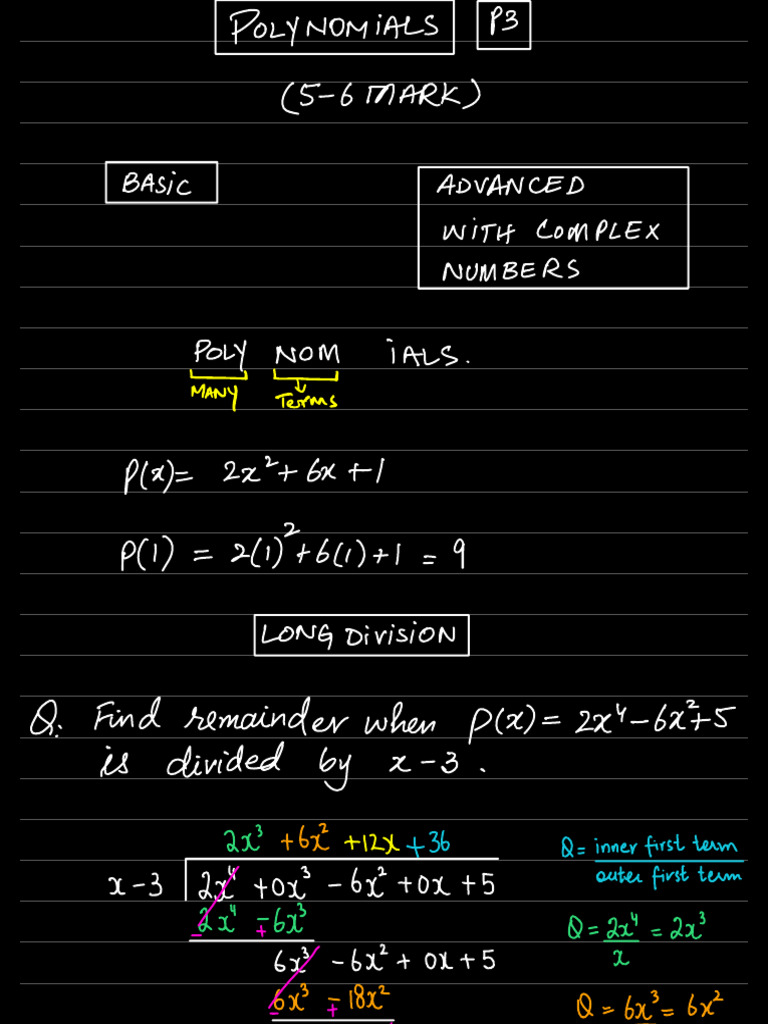 POLYNOMIALS P3
(5-6 MARK)
BASIC
ADVANCED
WITH COMPLEX
NUMBERS
POLY NOM IALS.
MANY Terms
P(x)= 2x²+ 6x +1
P(1) = 2(1)²+6(1)+1 = 9
LONG DIVISION
Q: Find remainder when P(x)= 2x⁴-6x²+5
is divided by x-3.
2x³ +6x² +12x +36
x-3 2x⁴ +0x³ -6x² +0x +5
2x⁴ -6x³
- +
6x³ -6x² + 0x +5
6x³ -18x²
- +
Q= inner first term
outer first term
Q= 2x⁴ = 2x³
x
Q = 6x³ = 6x²